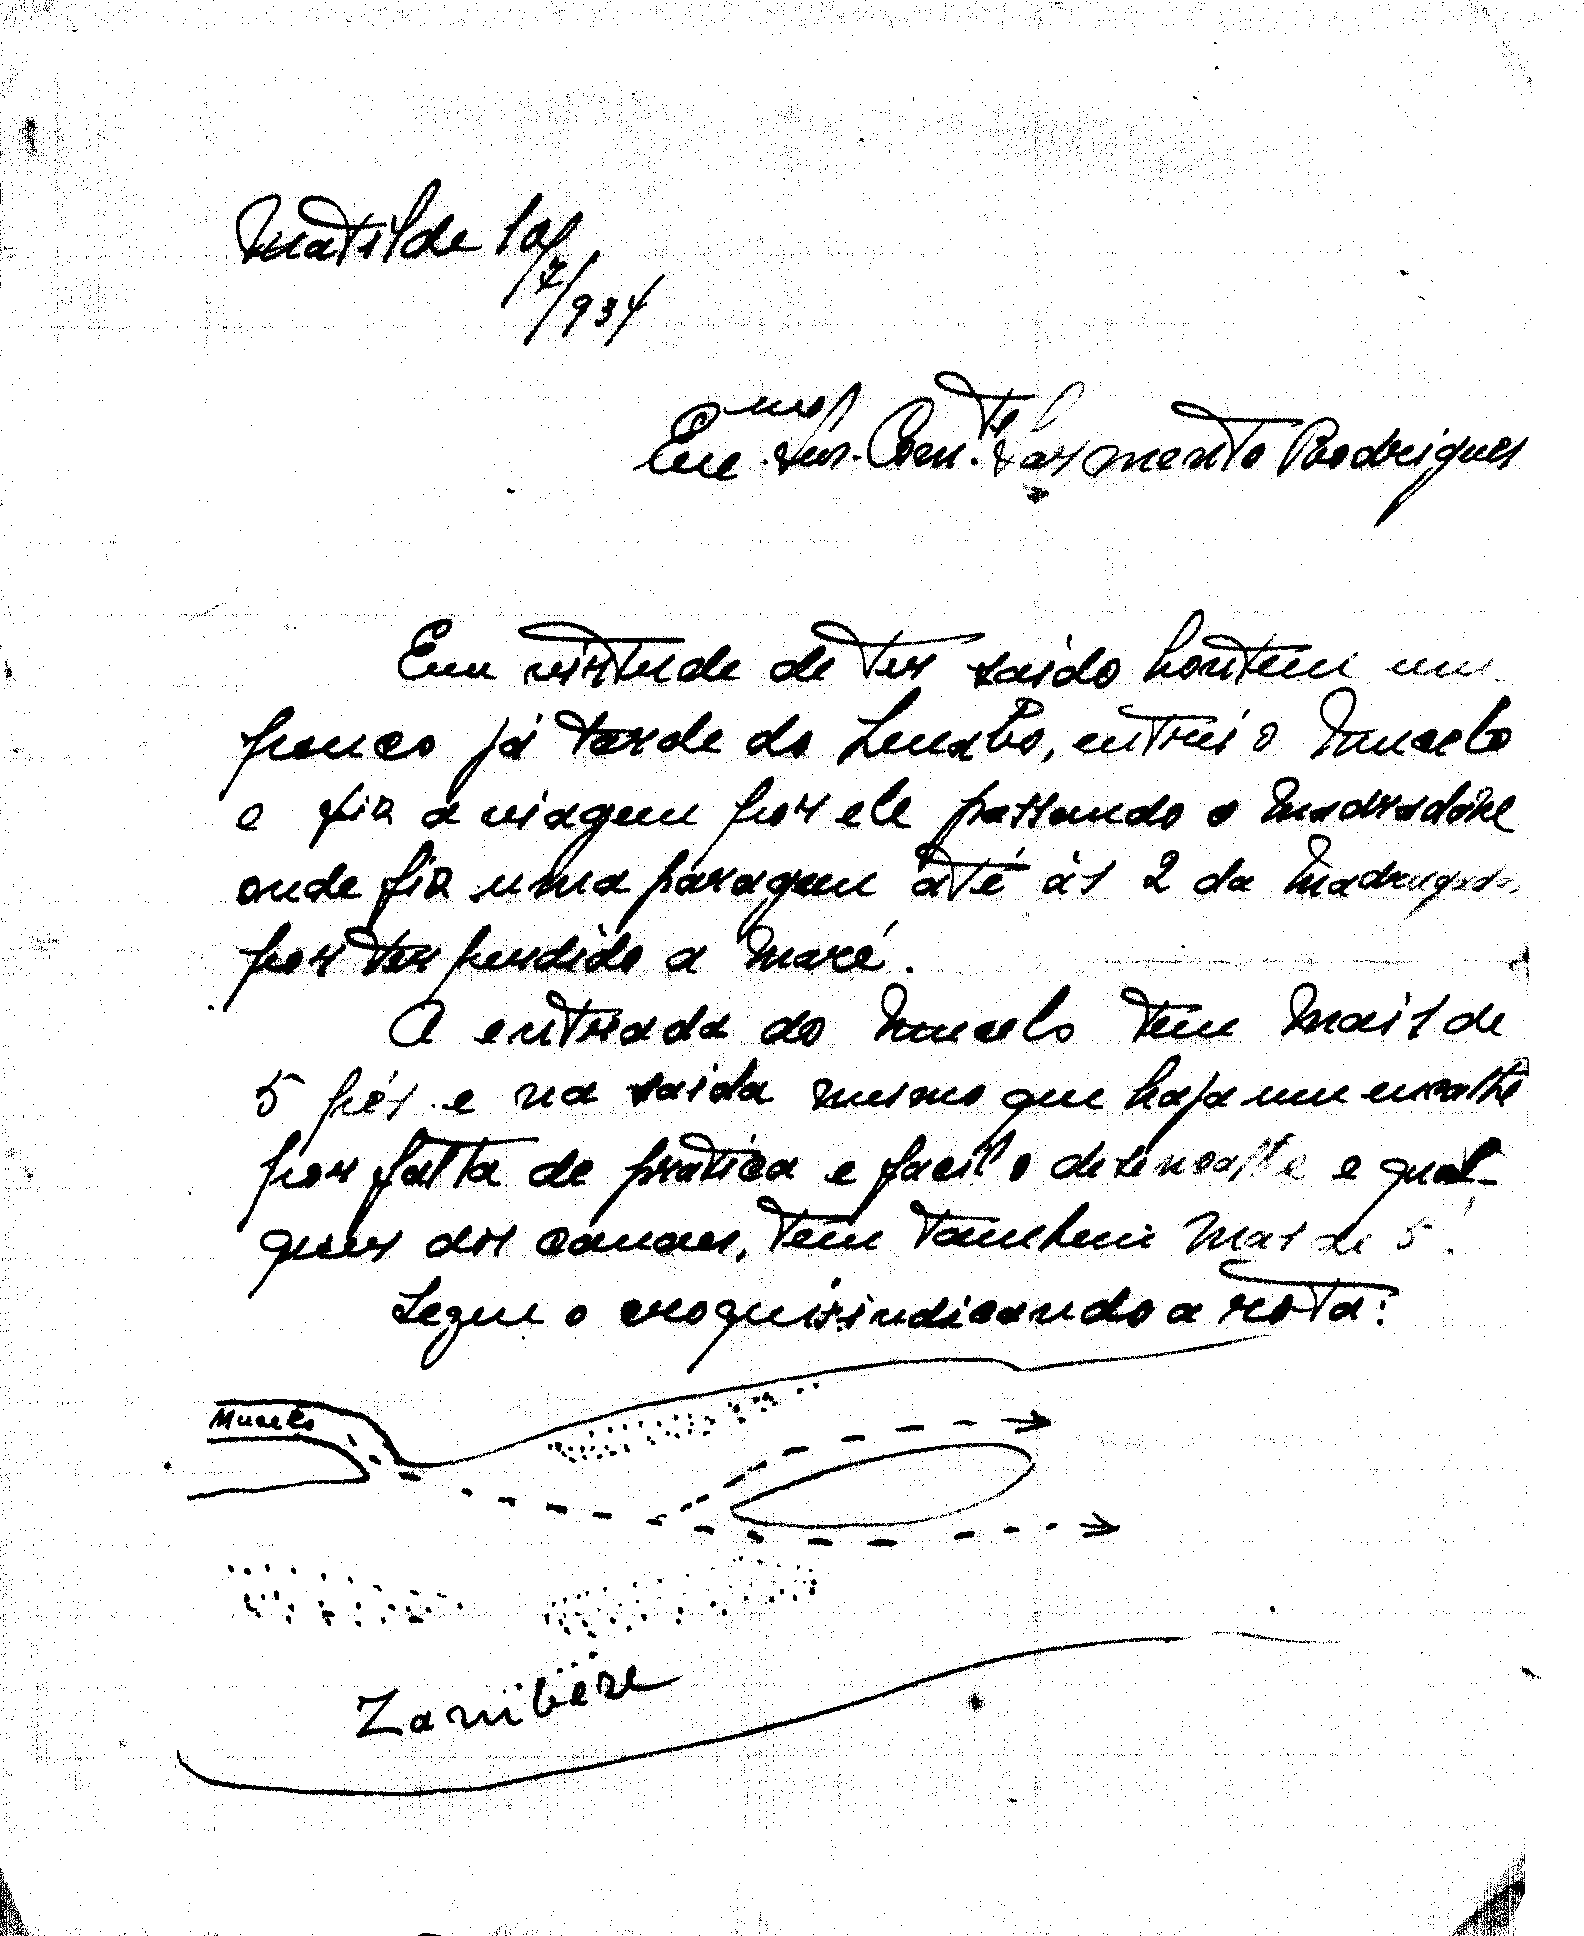 Matilde 10/
7/934
Exc.mo Snr. Com.te Sarmento Rodrigues
Em virtude de ter saido hontem um
pouco já tarde do Luabo, entrei o Mucelo
e fiz a viagem por ele passando o
onde fiz uma paragem até ás 2 da Madrugada
por ter perdido a Maré.
A entrada do Mucelo tem Mais de
5 pés e na saida mesmo que haja um encalhe
por falta de pratica e facil o desencalhe e qual-
quer dos canaes, tem tambem Mais de 5'.
Segue o croquis indicando a rota:
Mucelo
Zambeze